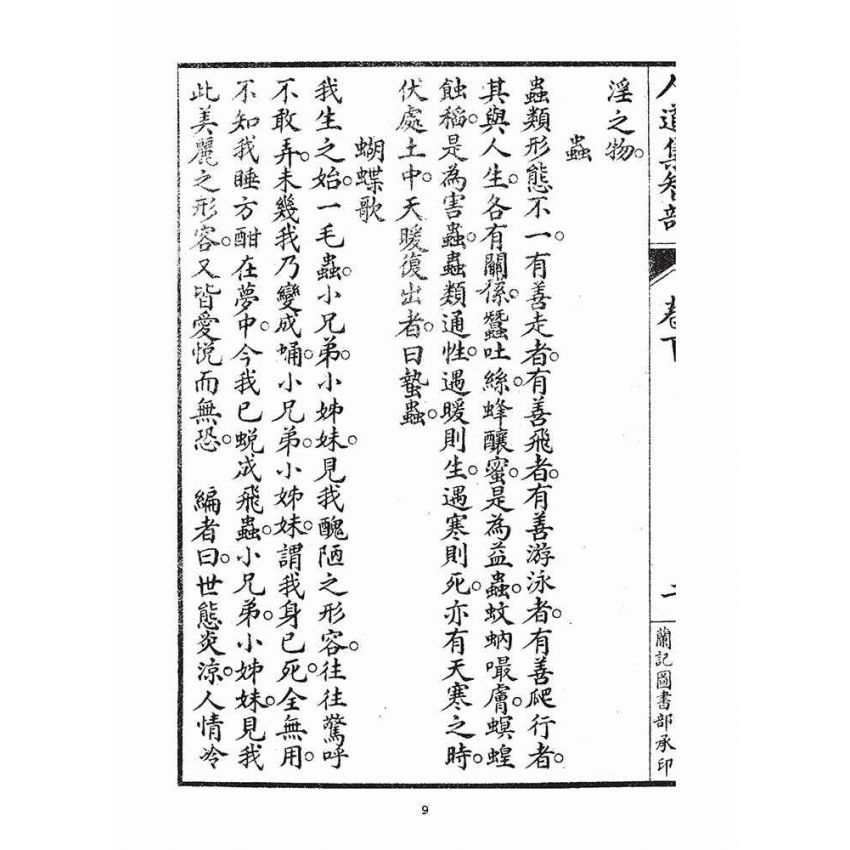 人道集智部
卷下
二
蘭記圖書部承印
淫之物。
蟲
蟲類形態不一。有善走者。有善飛者。有善游泳者。有善爬行者。
其與人生。各有關係。蠶吐絲。蜂釀蜜。是為益蟲。蚊蚋嘬膚。螟蝗
蝕稻。是為害蟲。蟲類通性。遇暖則生。遇寒則死。亦有天寒之時。
伏處土中。天暖復出者。曰蟄蟲。
蝴蝶歌
我生之始。一毛蟲。小兄弟。小姊妹。見我醜陋之形容。往往驚呼
不敢弄。未幾我乃變成蛹。小兄弟。小姊妹。謂我身已死。全無用。
不知我睡方酣在夢中。今我已蛻成飛蟲。小兄弟。小姊妹。見我
此美麗之形容。又皆愛悅而無恐。　編者曰。世態炎涼。人情冷
9